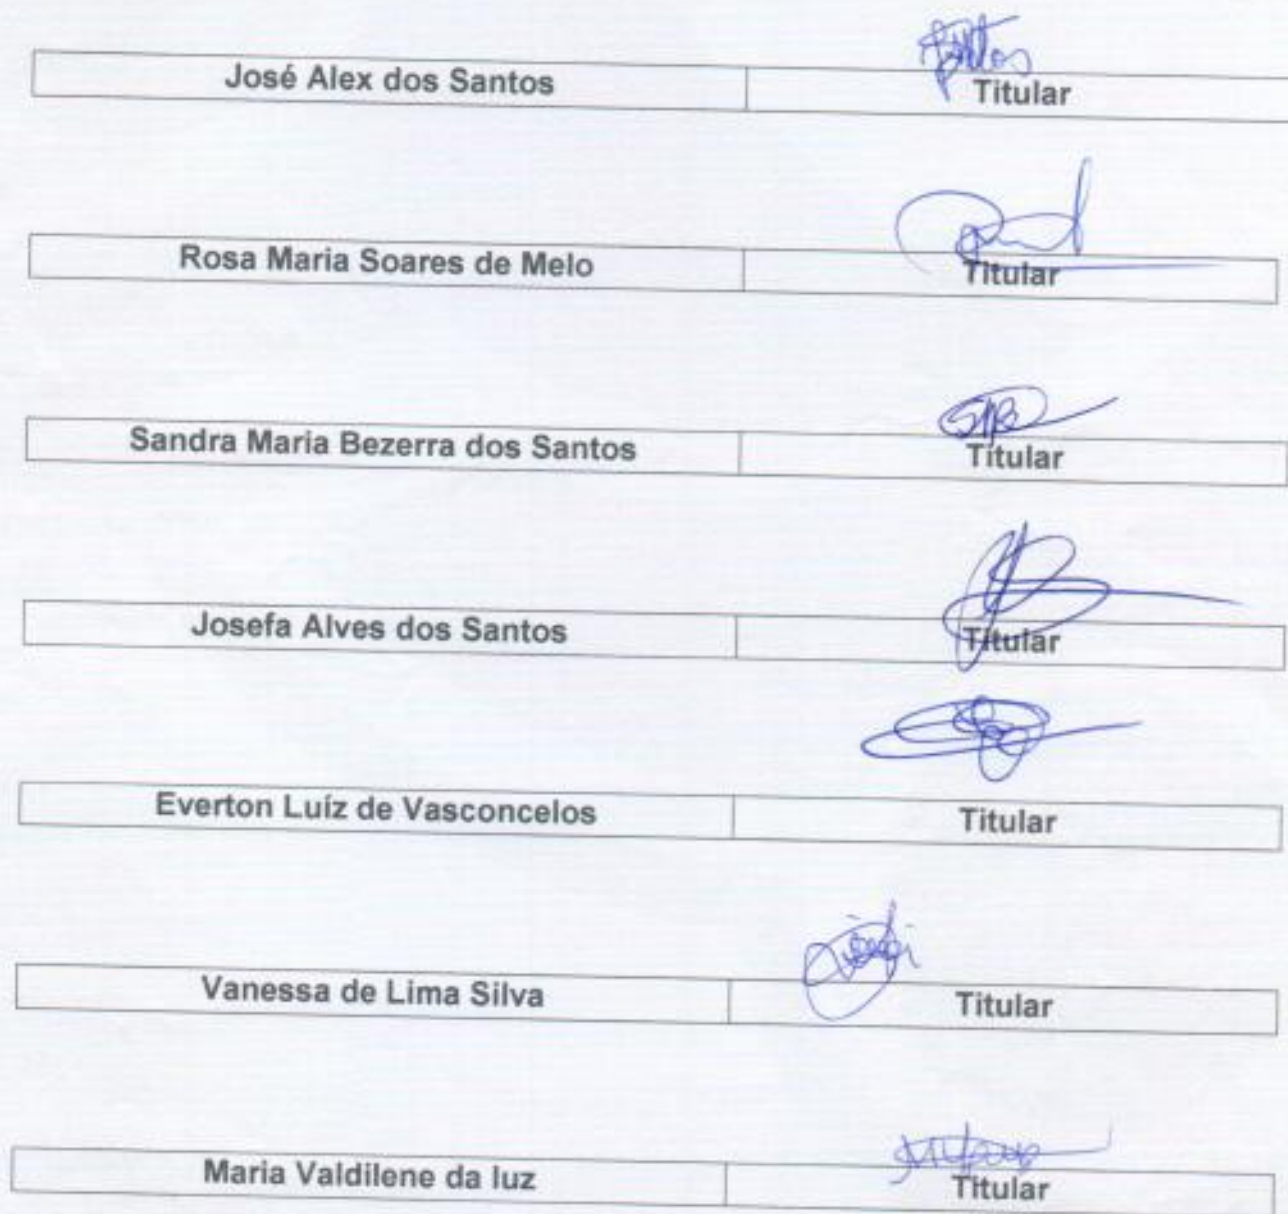 José Alex dos Santos Titular
Rosa Maria Soares de Melo Titular
Sandra Maria Bezerra dos Santos Titular
Josefa Alves dos Santos Titular
Everton Luíz de Vasconcelos Titular
Vanessa de Lima Silva Titular
Maria Valdilene da luz Titular